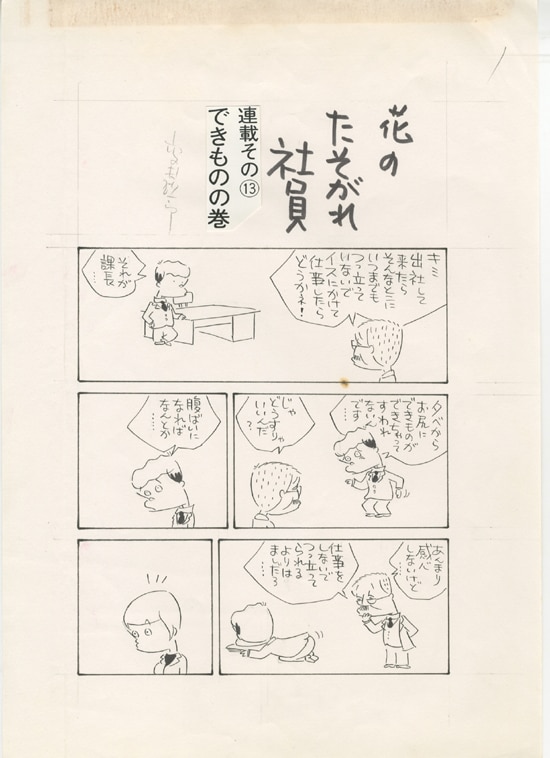 花の
たそがれ
社員
連載その⑬
できものの巻
キミ
出社して
来たら
そんなとこに
いつまでも
つっ立って
いないで
イスにかけて
仕事したら
どうかネ!
それが
課長
……
夕べから
お尻に
できものが
できちゃって
すわれ
ないん
です
じゃ
どうすりゃ
いいんだ
?
腹ばいに
なれば
なんとか
……
あんまり
感心
しないけど
……
仕事を
しないで
つっ立って
られる
よりは
ましだろ